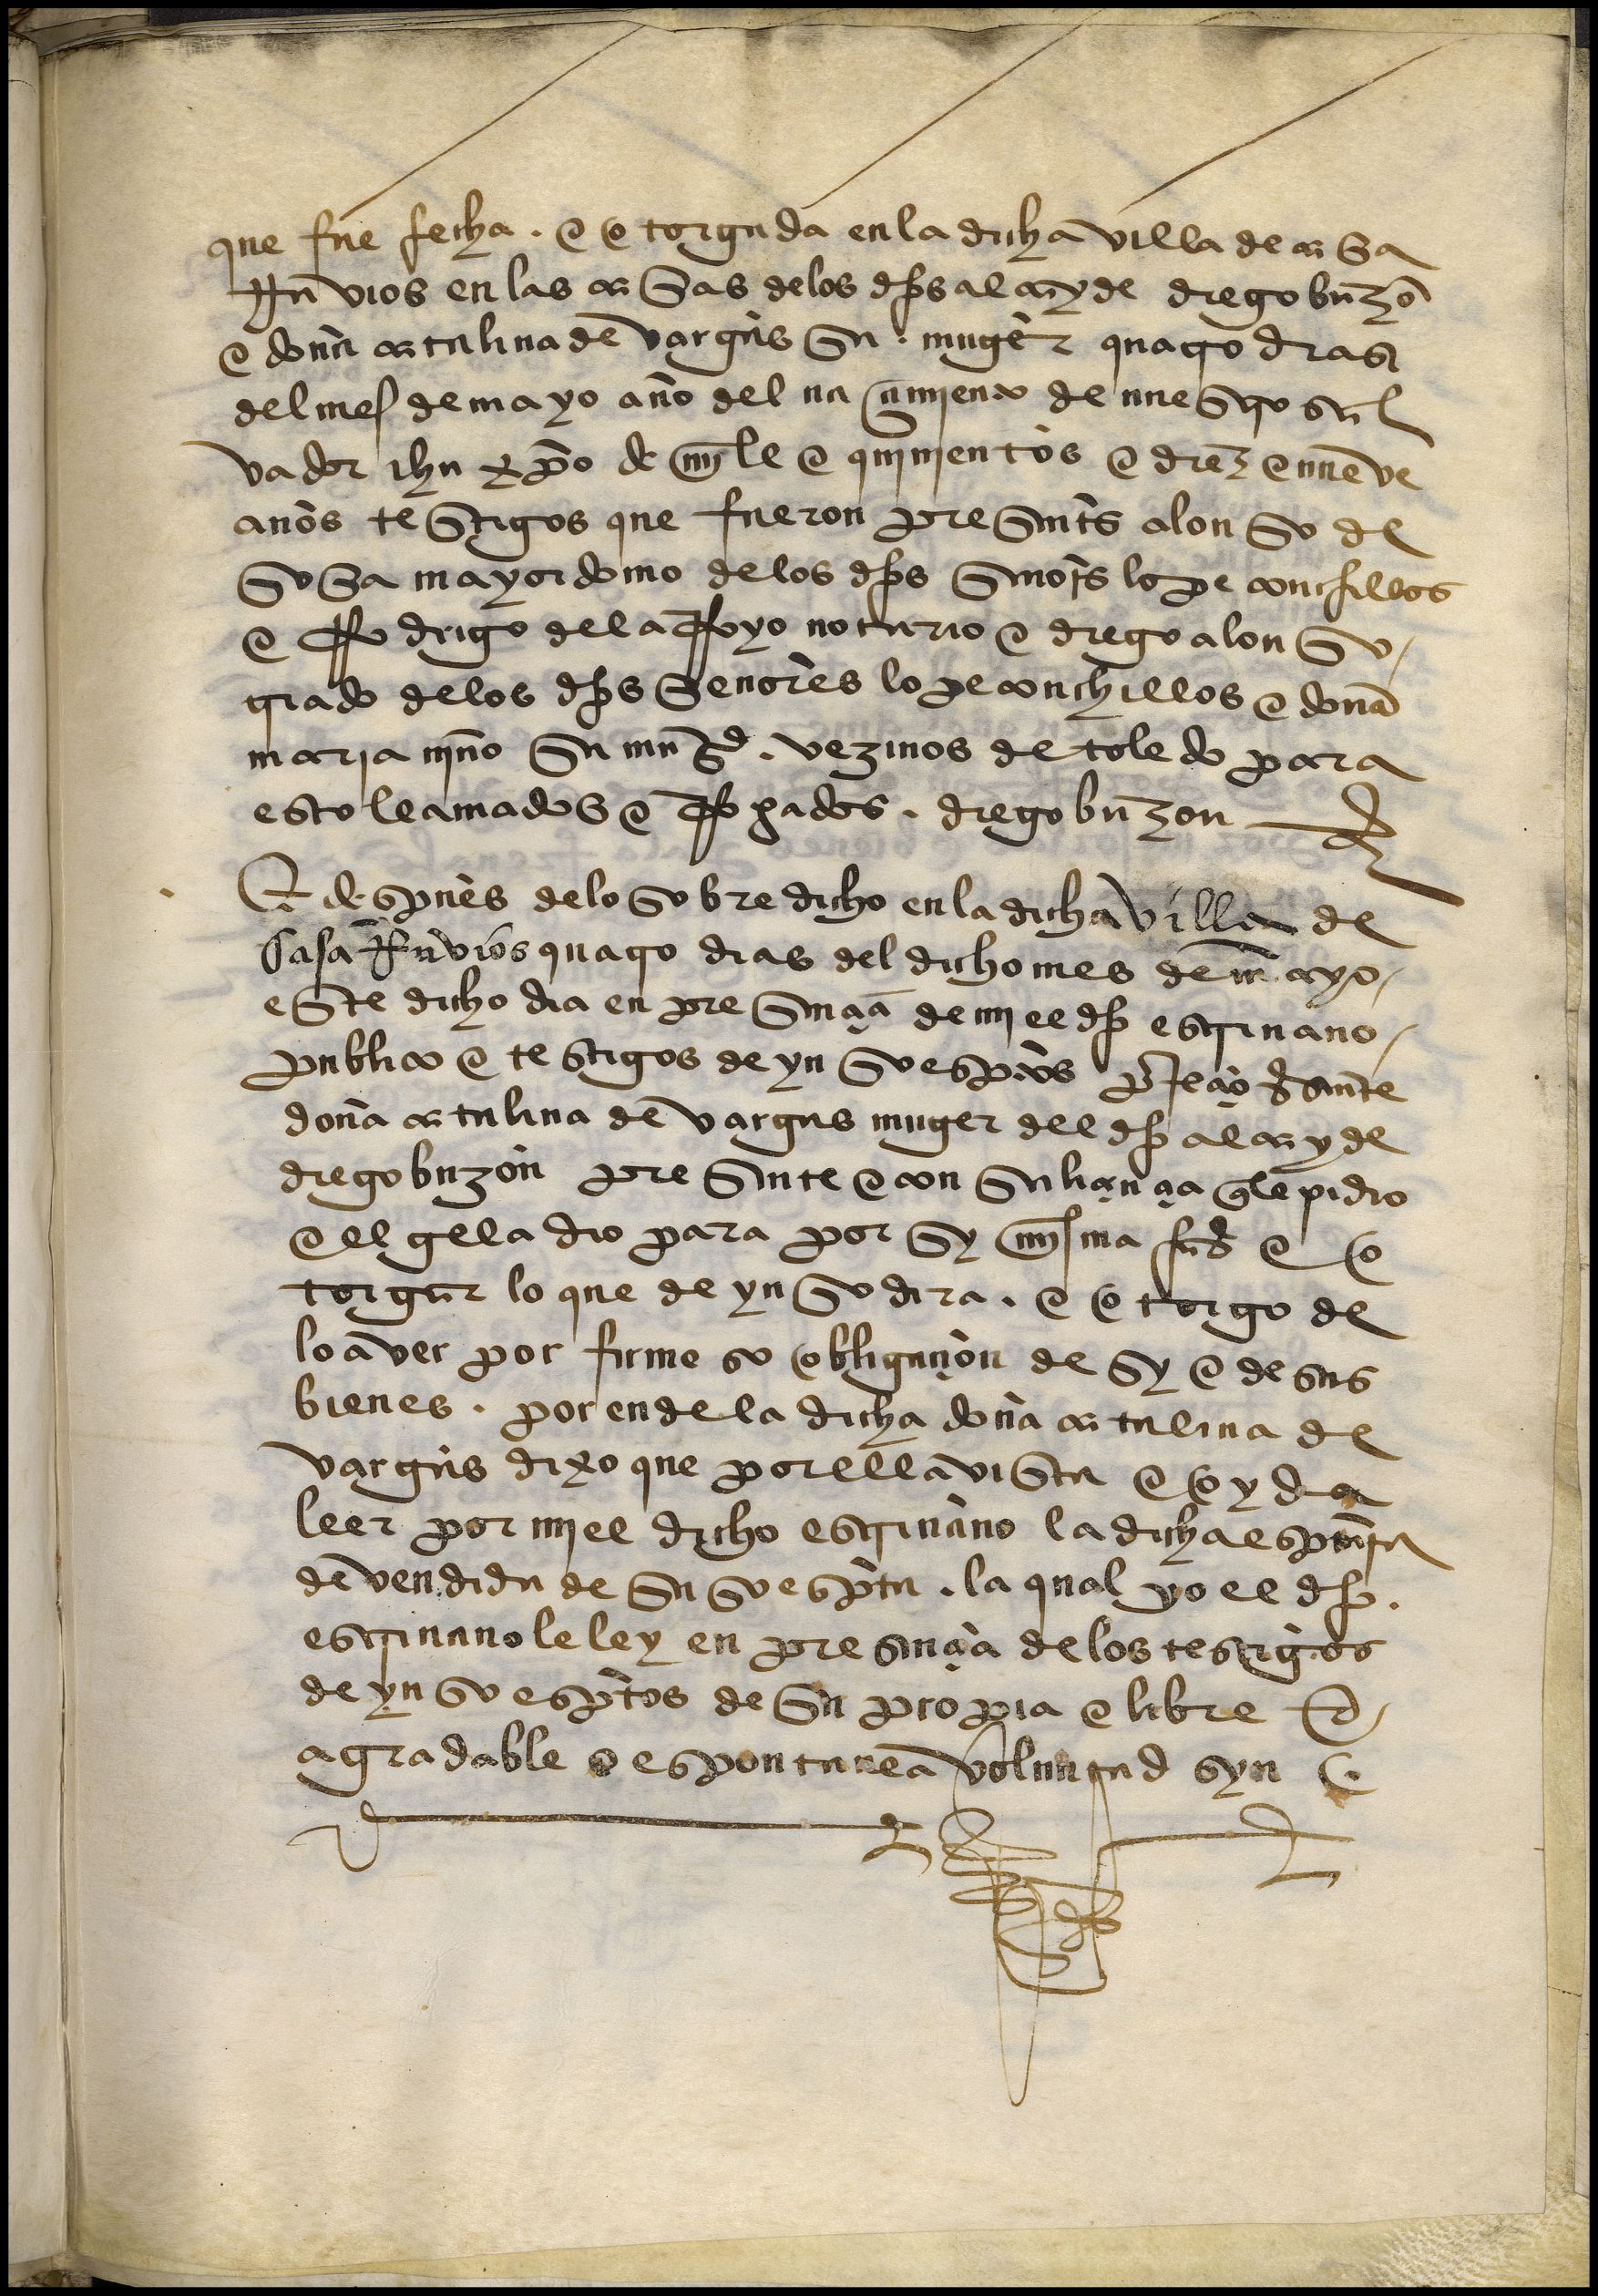 que fue fecha . e otorgada en la dicha villa de casa
Rruvios en las casas de los dhos alcayde diego buzō
e doña catalina de vargas su muger quatro dias
del mes de mayo año del nacimiento de nuestro sal
vador ihu xpo de mjll e qujnientos e diez e nueve
años testigos que fueron presentes alonso de
sosa mayordomo de los dhos señores lope conchillos
e Rodrigo de la Royo notario e diego alonso
criado de los dhos señores lope conchillos e doña
marja njño su muger . vezinos de toledo para
esto llamados e Rogados . diego buzon
E despues de lo sobre dicho en la dicha villa de
Casa Rruvios quatro dias del dicho mes de mayo
este dicho dia en presencia de mj el dho escriuano
publico e testigos de yuso escriptos paresçio presente
doña catalina de vargas muger del dho alcayde
diego buzon presente e con su liçençia que le pidio
e el gela dio para por sy mjsma fazer e o
torgar lo que de yuso dira . e otorgo de
lo aver por firme so obligaçion de sy e de sus
bienes . por ende la dicha doña catalina de
vargas dixo que por ella vista e oyda
leer por mj el dicho escriuano la dicha escriptura
de vendida de suso escripta . la qual yo el dho .
escriuano le ley en presençia de los testigos
de yuso escriptos de su propia e libre e
agradable e espontanea voluntad syn